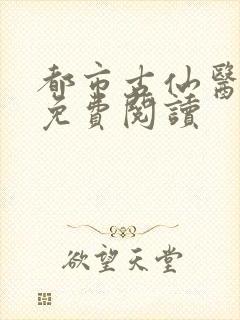 都市古仙醫
免費閱讀
欲望天堂